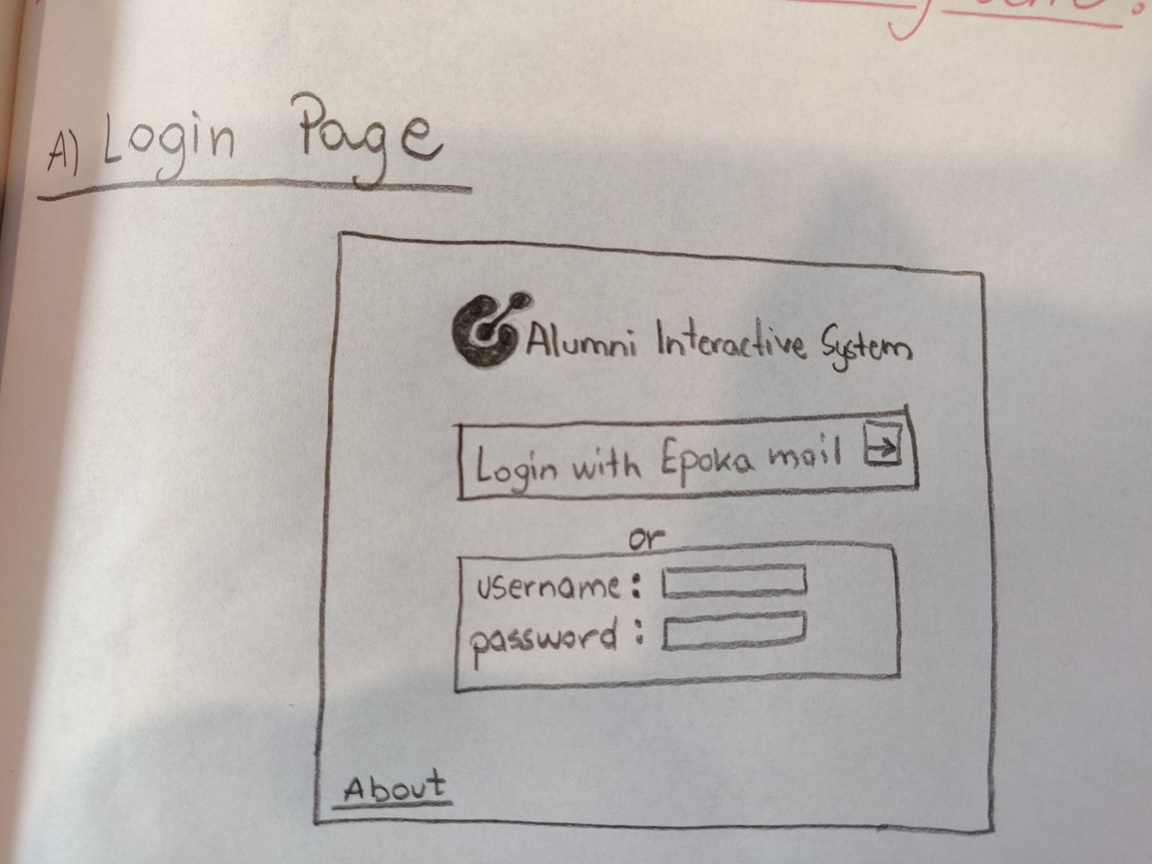 A) Login Page
Alumni Interactive System
Login with Epoka mail →
or
username:
password:
About